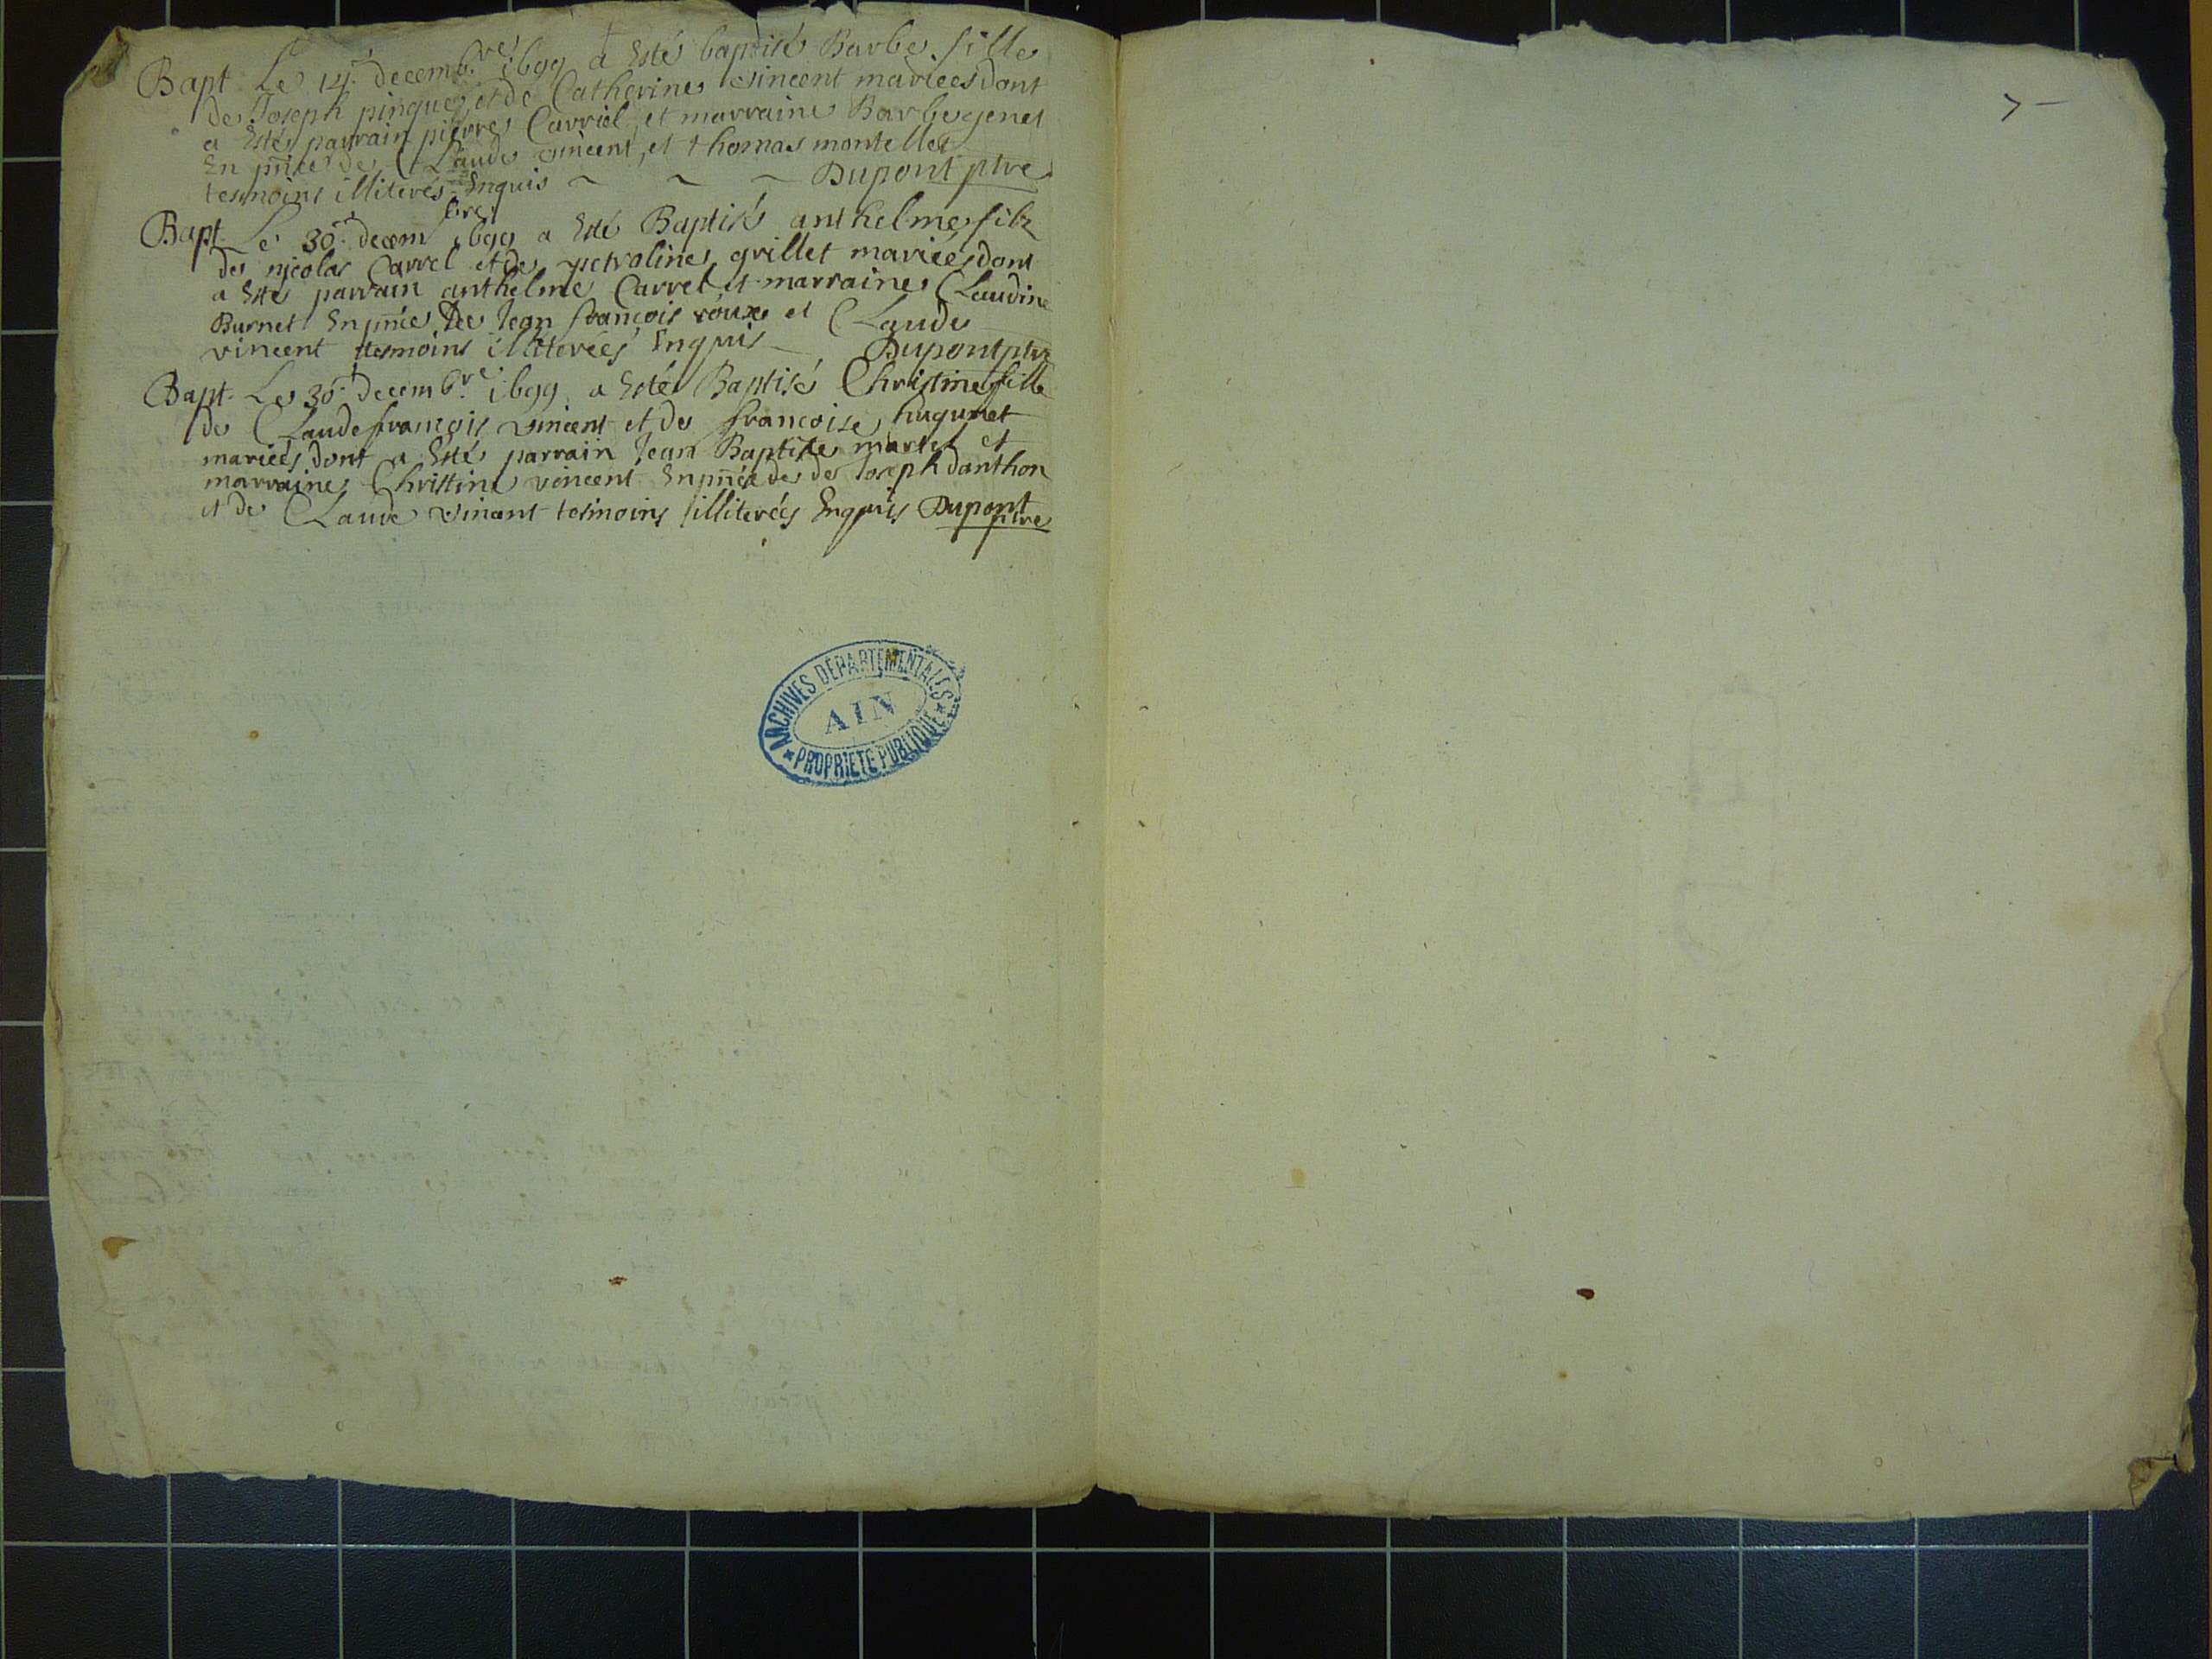 Bapt. Le 14.e decemb.re 1699 a Esté baptisé Barbe fille
de Joseph pinguet et de Catherine vincent mariees dont
a Esté parrain pierre Carriel, et marraine Barbe genet
En pñce de Claude vincent, et thomas montellet
tesmoins illiterés Enquis ~ ~ ~ Dupont ptre
Bapt. Le 30.e decembre 1699 a Esté Baptisé anthelme filz
de nicolas Carrel et de petroline grillet mariées dont
a Esté parrain anthelme Carrel et marraine Claudine
Burnet En pñce de Jean françois roux et Claude
vincent tesmoins illiterées Enquis Dupont ptre
Bapt. Le 30.e decemb.re 1699 a Esté Baptisé Christine fille
de Claude françois vincent et de françoise hugunet
mariées dont a Esté parrain Jean Baptiste et
marraine Christine vincent En pñce de de Joseph danthon
et de Claude vincent tesmoins illiterées Enquis Dupont
ptre
ARCHIVES DEPARTEMENTALES
AIN
* PROPRIETE PUBLIQUE *
7